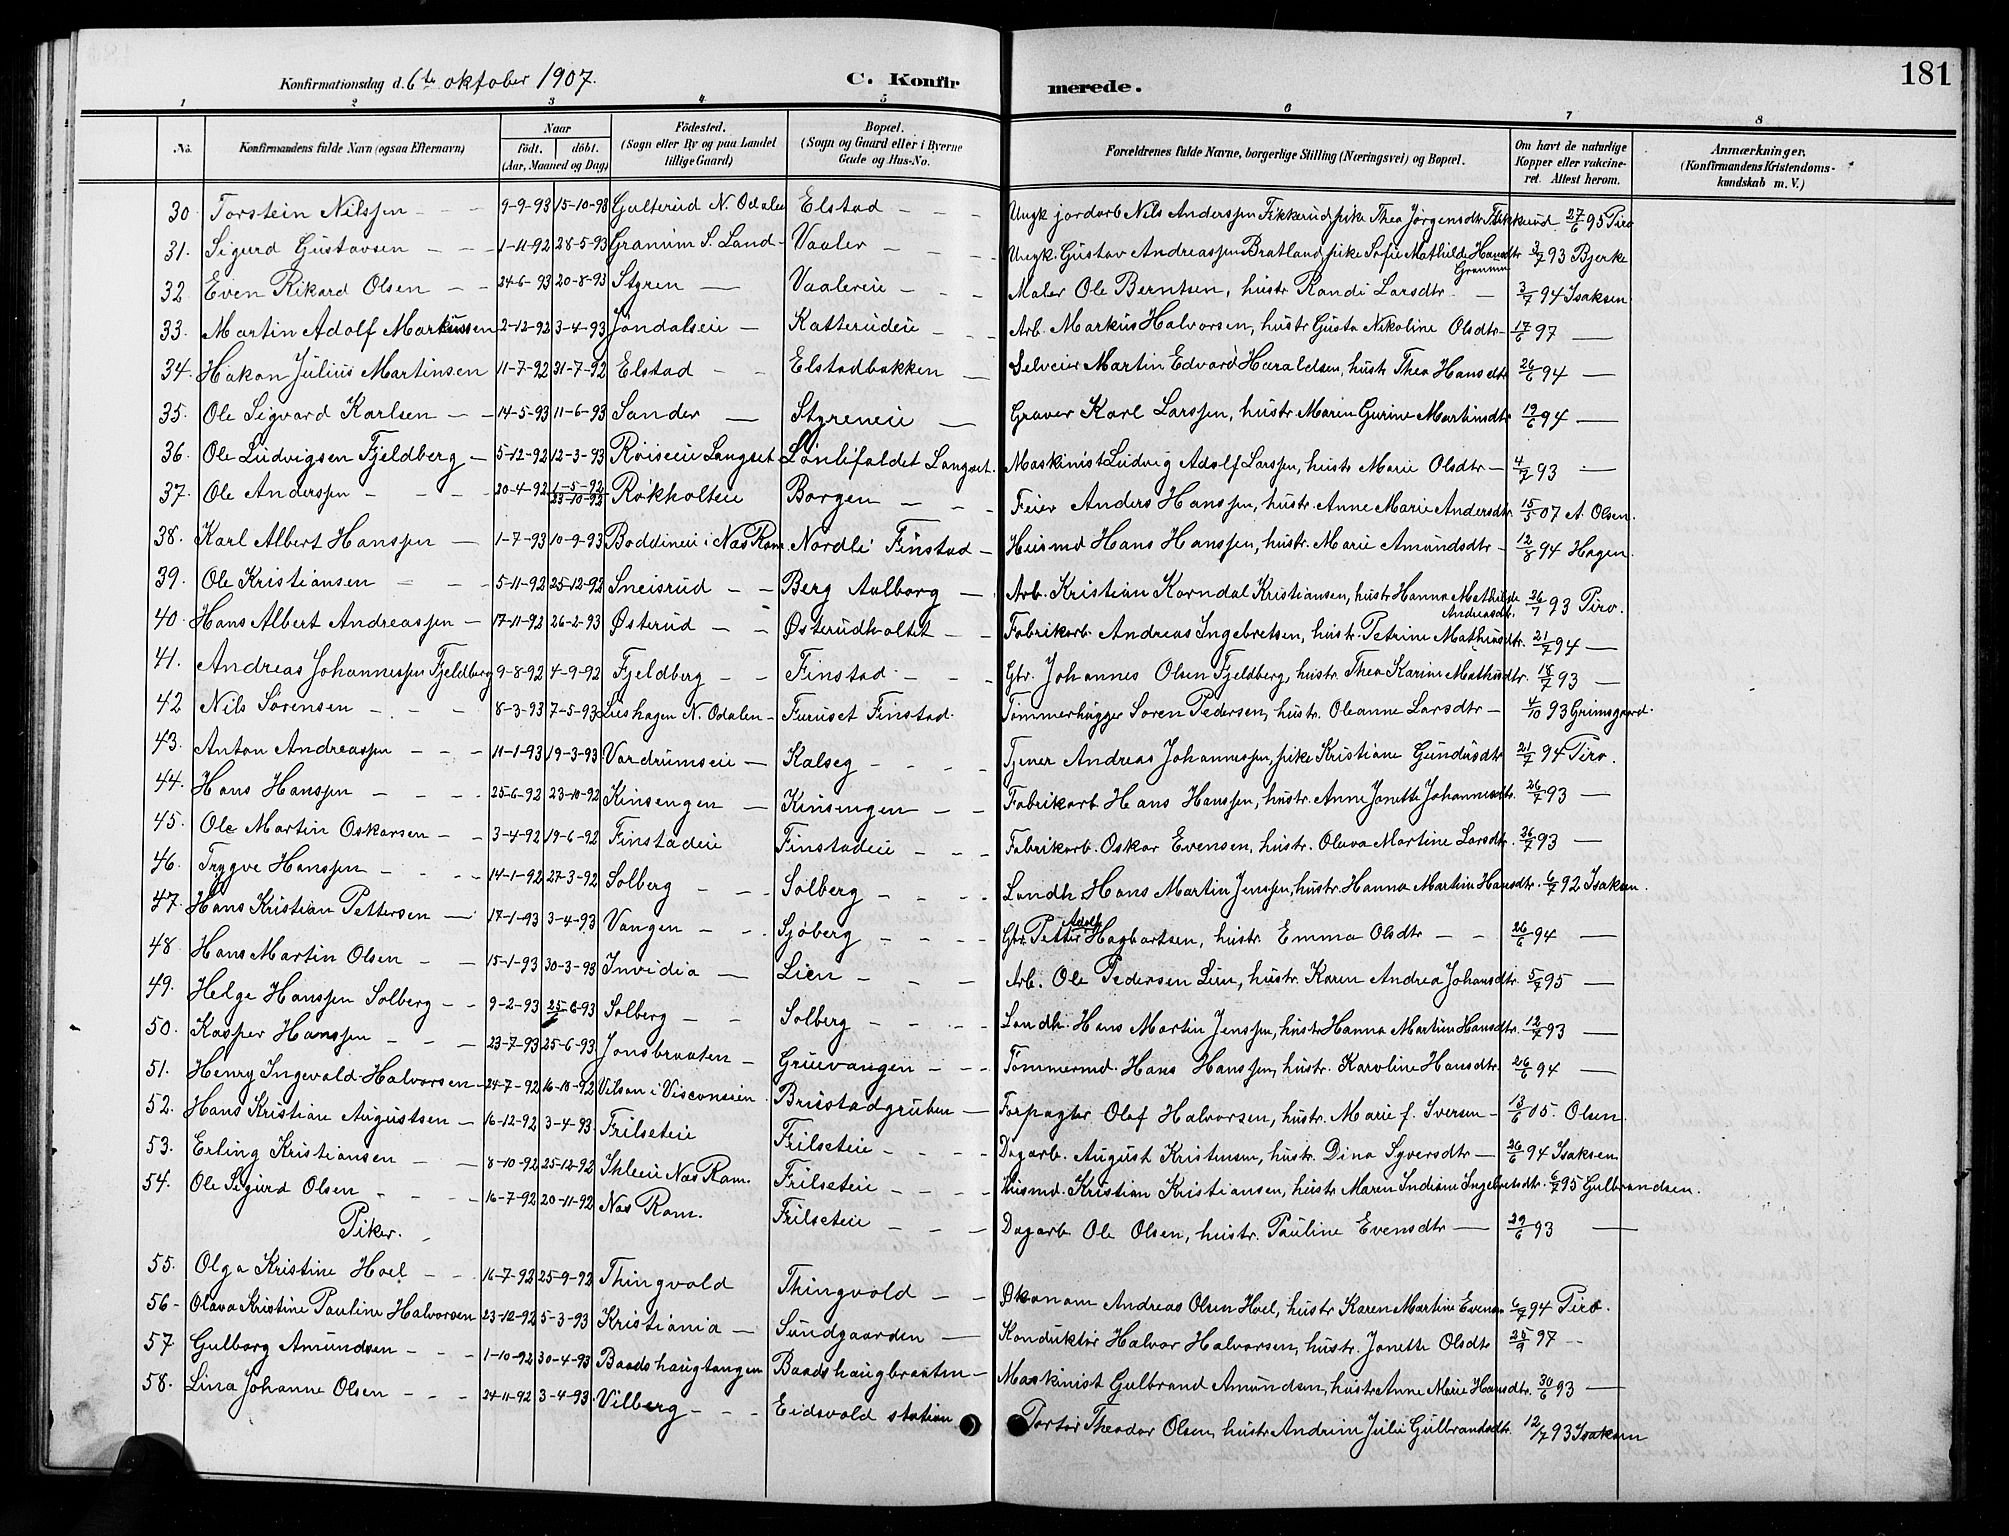 181
Konfirmationsdag d. 6te oktober 1907. C. Konfirmerede.
1 2 3 4 5 6 7 8
No. Konfirmandens fulde Navn (ogsaa Efternavn) Naar født. døbt. (Aar, Maaned og Dag) Fødested. (Sogn eller By og paa Landet tillige Gaard) Bopæl. (Sogn og Gaard eller i Byerne Gade og Hus-No. Forældrenes fulde Navne, borgerlige Stilling (Næringsvei) og Bopæl. Om havt de naturlige Kopper eller vakcineret. Attest herom. Anmærkninger. (Konfirmandens Kristendomskundskab m. V.)
30. Torstein Nilssen - - - 9-9-93 15-10-93 Gulterud N. Odalen Elstad - - - Ungk jordarb Nils Anderssen Fikkerud, pike Thea Jørgensdtr Fikkerud 27/6 95 Piro
31. Sigurd Gustavsen - - 1-11-92 28-5-93 Granum S. Land - Vaaler - - - Ungk. Gustav Andreassen Bratland, pike Sofie Mathilde Hansdtr Granum 3/7 93 Bjerke
32 Even Rikard Olsen - - 24-6-93 20-8-93 Styren - Vaalereie - - - Maler Ole Berntsen, hustr Randi Larsdtr - - 3/7 94 Isaksen
33. Martin Adolf Markussen 2-12-92 3-4-93 Jøndalseie - Katterudeie - - Arb. Markus Halvorsen, hustr Gusta Nikoline Olsdtr - 17/6 97 —
34. Håkon Julius Martinsen 11-7-92 31-7-92 Elstad - - Elstadbakken - Selveier Martin Edvard Haraldsen, hustr Thea Hansdtr 26/6 94 —
35. Ole Sigvard Karlsen - - 14-5-93 11-6-93 Sander - Styreneie - Graver Karl Larssen, hustr Maren Gurine Martinsdtr 19/6 94 —
36. Ole Ludvigsen Fjeldberg - 5-12-92 12-3-93 Røiseie Langset Lønlifaldet Langset. Maskinist Ludvig Adolf Larssen, hustr Marie Olsdtr - 4/7 93 —
37. Ole Anderssen - - - 20-4-92 1-5-92 23-10-92 Røkholteie Borgen - - - Feier Anders Hanssen, hustr. Anne Marie Andersdtr. 15/5 07 A. Olsen.
38. Karl Albert Hanssen - 1-7-93 10-9-93 Boddineie i Næs Rom. Nordli Finstad - Husmd Hans Hanssen, hustr. Marie Amundsdtr - 12/8 94 Hagen.
39. Ole Kristiansen - - - 5-11-92 25-12-92 Sneisrud - - Berg Aalborg - Arb. Kristian Korndal Kristiansen, hustr Hanna Mathilde Andreasdtr. 26/7 93 Piro.
40. Hans Albert Andreassen - 17-11-92 26-2-93 Østerud - - Østerudholtet - - Fabrikarb. Andreas Ingebretsen, hustr. Petrine Mathiasdtr. 21/7 94 —
41. Andreas Johannessen Fjeldberg 9-8-92 4-9-92 Fjeldberg - - Finstad - - - Gbr. Johannes Olsen Fjeldberg, hustr. Thea Karine Mathisdtr. 18/7 93 —
42 Nils Sørensen - - - 8-3-93 7-5-93 Lushagen N. Odalen - Furuset Finstad. Tømmerhugger Søren Pedersen, hustr. Oleanne Larsdtr - 4/10 93 Grimsgaard.
43. Anton Andreassen - - - 11-1-93 19-3-93 Vardrumseie - Kalseg - - - - Tjener Andreas Johannessen, pike Kristiane Gundersdtr 21/7 94 Piro.
44. Hans Hanssen - - - 25-6-92 23-10-92 Kinsengen - Kinsengen - - Fabrikarb Hans Hanssen, hustr. Anne Jonette Johannesdtr. 26/7 93 —
45. Ole Martin Oskarsen - - 3-4-92 19-6-92 Finstadeie Finstadeie - - - Fabrikarb. Oskar Evensen, hustr. Olava Martine Larsdtr. 26/7 93 —
46. Trygve Hanssen - - - 14-1-92 27-3-92 Solberg - - Solberg - - - - Landh. Hans Martin Jenssen, hustr. Hanna Martine Hansdtr. 6/7 92 Isaksen.
47. Hans Kristian Pettersen - 17-1-93 3-4-93 Vangen - - Sjøberg - - - - Gbr. Petter Adolf Hagbartsen, hustr. Emma Olsdtr - - 26/6 94 —
48. Hans Martin Olsen - - 15-1-93 30-3-93 Invidia - Lien - - - Arb. Ole Pedersen Lien, hustr. Karen Andrea Johansdtr. 5/7 95 —
49. Helge Hanssen Solberg - - 9-2-93 25-6-93 Solberg - - Solberg - - - - Landh. Hans Martin Jenssen, hustr Hanna Martine Hansdtr. 12/7 93 —
50. Kasper Hanssen - - - 23-7-93 25-6-93 Jonsbraaten - Gruevangen - - - Tømmermd. Hans Hanssen, hustr. Karoline Hansdtr. 26/6 94 —
51. Henry Ingevald Halvorsen - 24-7-92 16-10-92 Vilson i Visconsien. Brustadgruben - Forpagter Olaf Halvorsen, hustr. Marie f. Iversen - 13/6 05. Olsen.
52. Hans Kristian Augustsen - 16-12-92 3-4-93 Frilseteie Frilseteie - - - - Dagarb. August Kristensen, hustr. Dina Syversdtr - 26/6 94 Isaksen
53. Erling Kristiansen - - 8-10-92 25-12-92 Ihleeie Næs Rom. Frilseteie - - - - Husmd. Kristian Kristiansen, hustr Maren Indiane Ingebretsdtr. 6/7 95 Gulbrandsen.
54. Ole Sigurd Olsen - - - - 16-7-92 20-11-92 Næs Rom. Frilseteie - - - Dagarb Ole Olsen, hustr. Pauline Evensdtr - 29/6 93 —
Piker.
55. Olga Kristine Hoel - - 16-7-92 25-9-92 Thingvold Thingvold - - Økonom Andreas Olsen Hoel, hustr Karen Martine Evensen 6/7 94 Piro.
56 - Olava Kristine Pauline Halvorsen 23-12-92 5-3-93 Kristiania - Sundgaarden - Konduktør Halvor Halvorsen, hustr. Jonette Olsdtr 25/9 97 - -
57 Gulborg Amundsen - - - 1-10-92 30-4-93 Baadshaugtangen Baadshaugbraaten - Maskinist Gulbrand Amundsen, hustr Anne Marie Hansdtr. 30/6 93 —
58. Lina Johanne Olsen - - - 24-11-92 3-4-93 Vilberg - - - Eidsvold station Portør Theodor Olsen, hustr Andrine Julie Gulbrandsdtr. 12/7 93 Isaksen